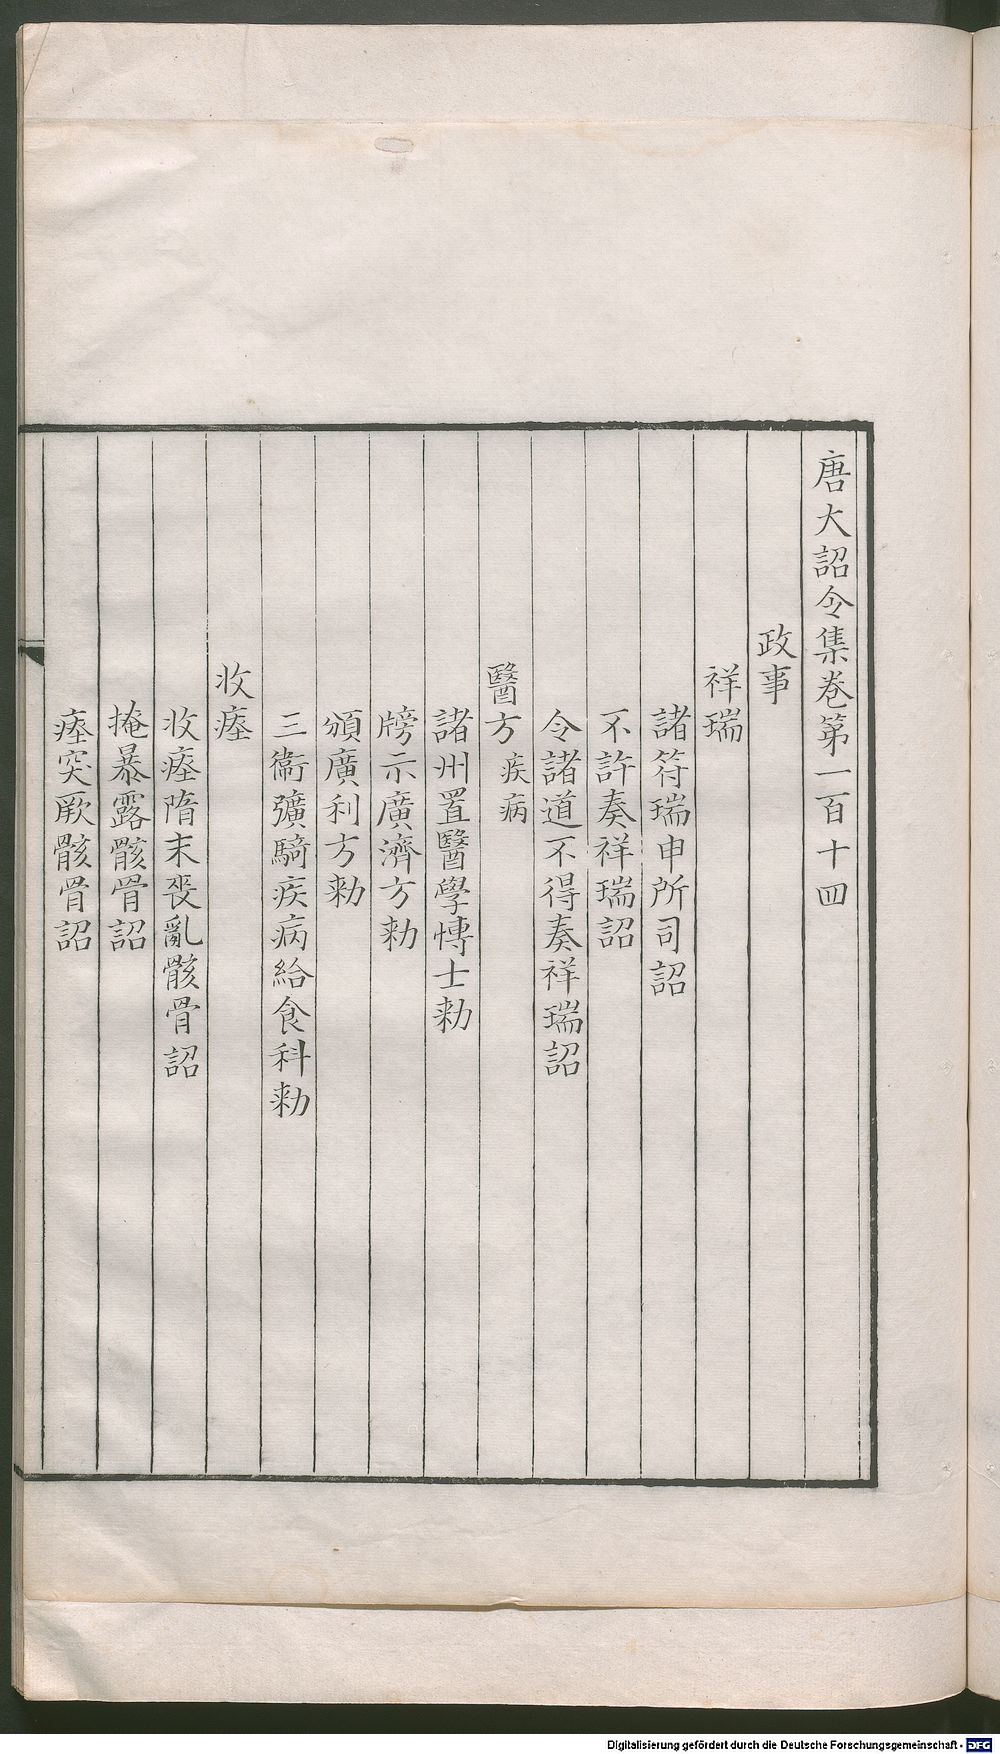 唐大詔令集卷第一百十四
政事
祥瑞
諸符瑞申所司詔
不許奏祥瑞詔
令諸道不得奏祥瑞詔
醫方疾病
諸州置醫學博士勑
牓示廣濟方勑
頒廣利方勑
三衞彍騎疾病給食科勑
收瘞
收瘞隋末喪亂骸骨詔
掩暴露骸骨詔
瘞突厥骸骨詔
Digitalisierung gefördert durch die Deutsche Forschungsgemeinschaft - DFG